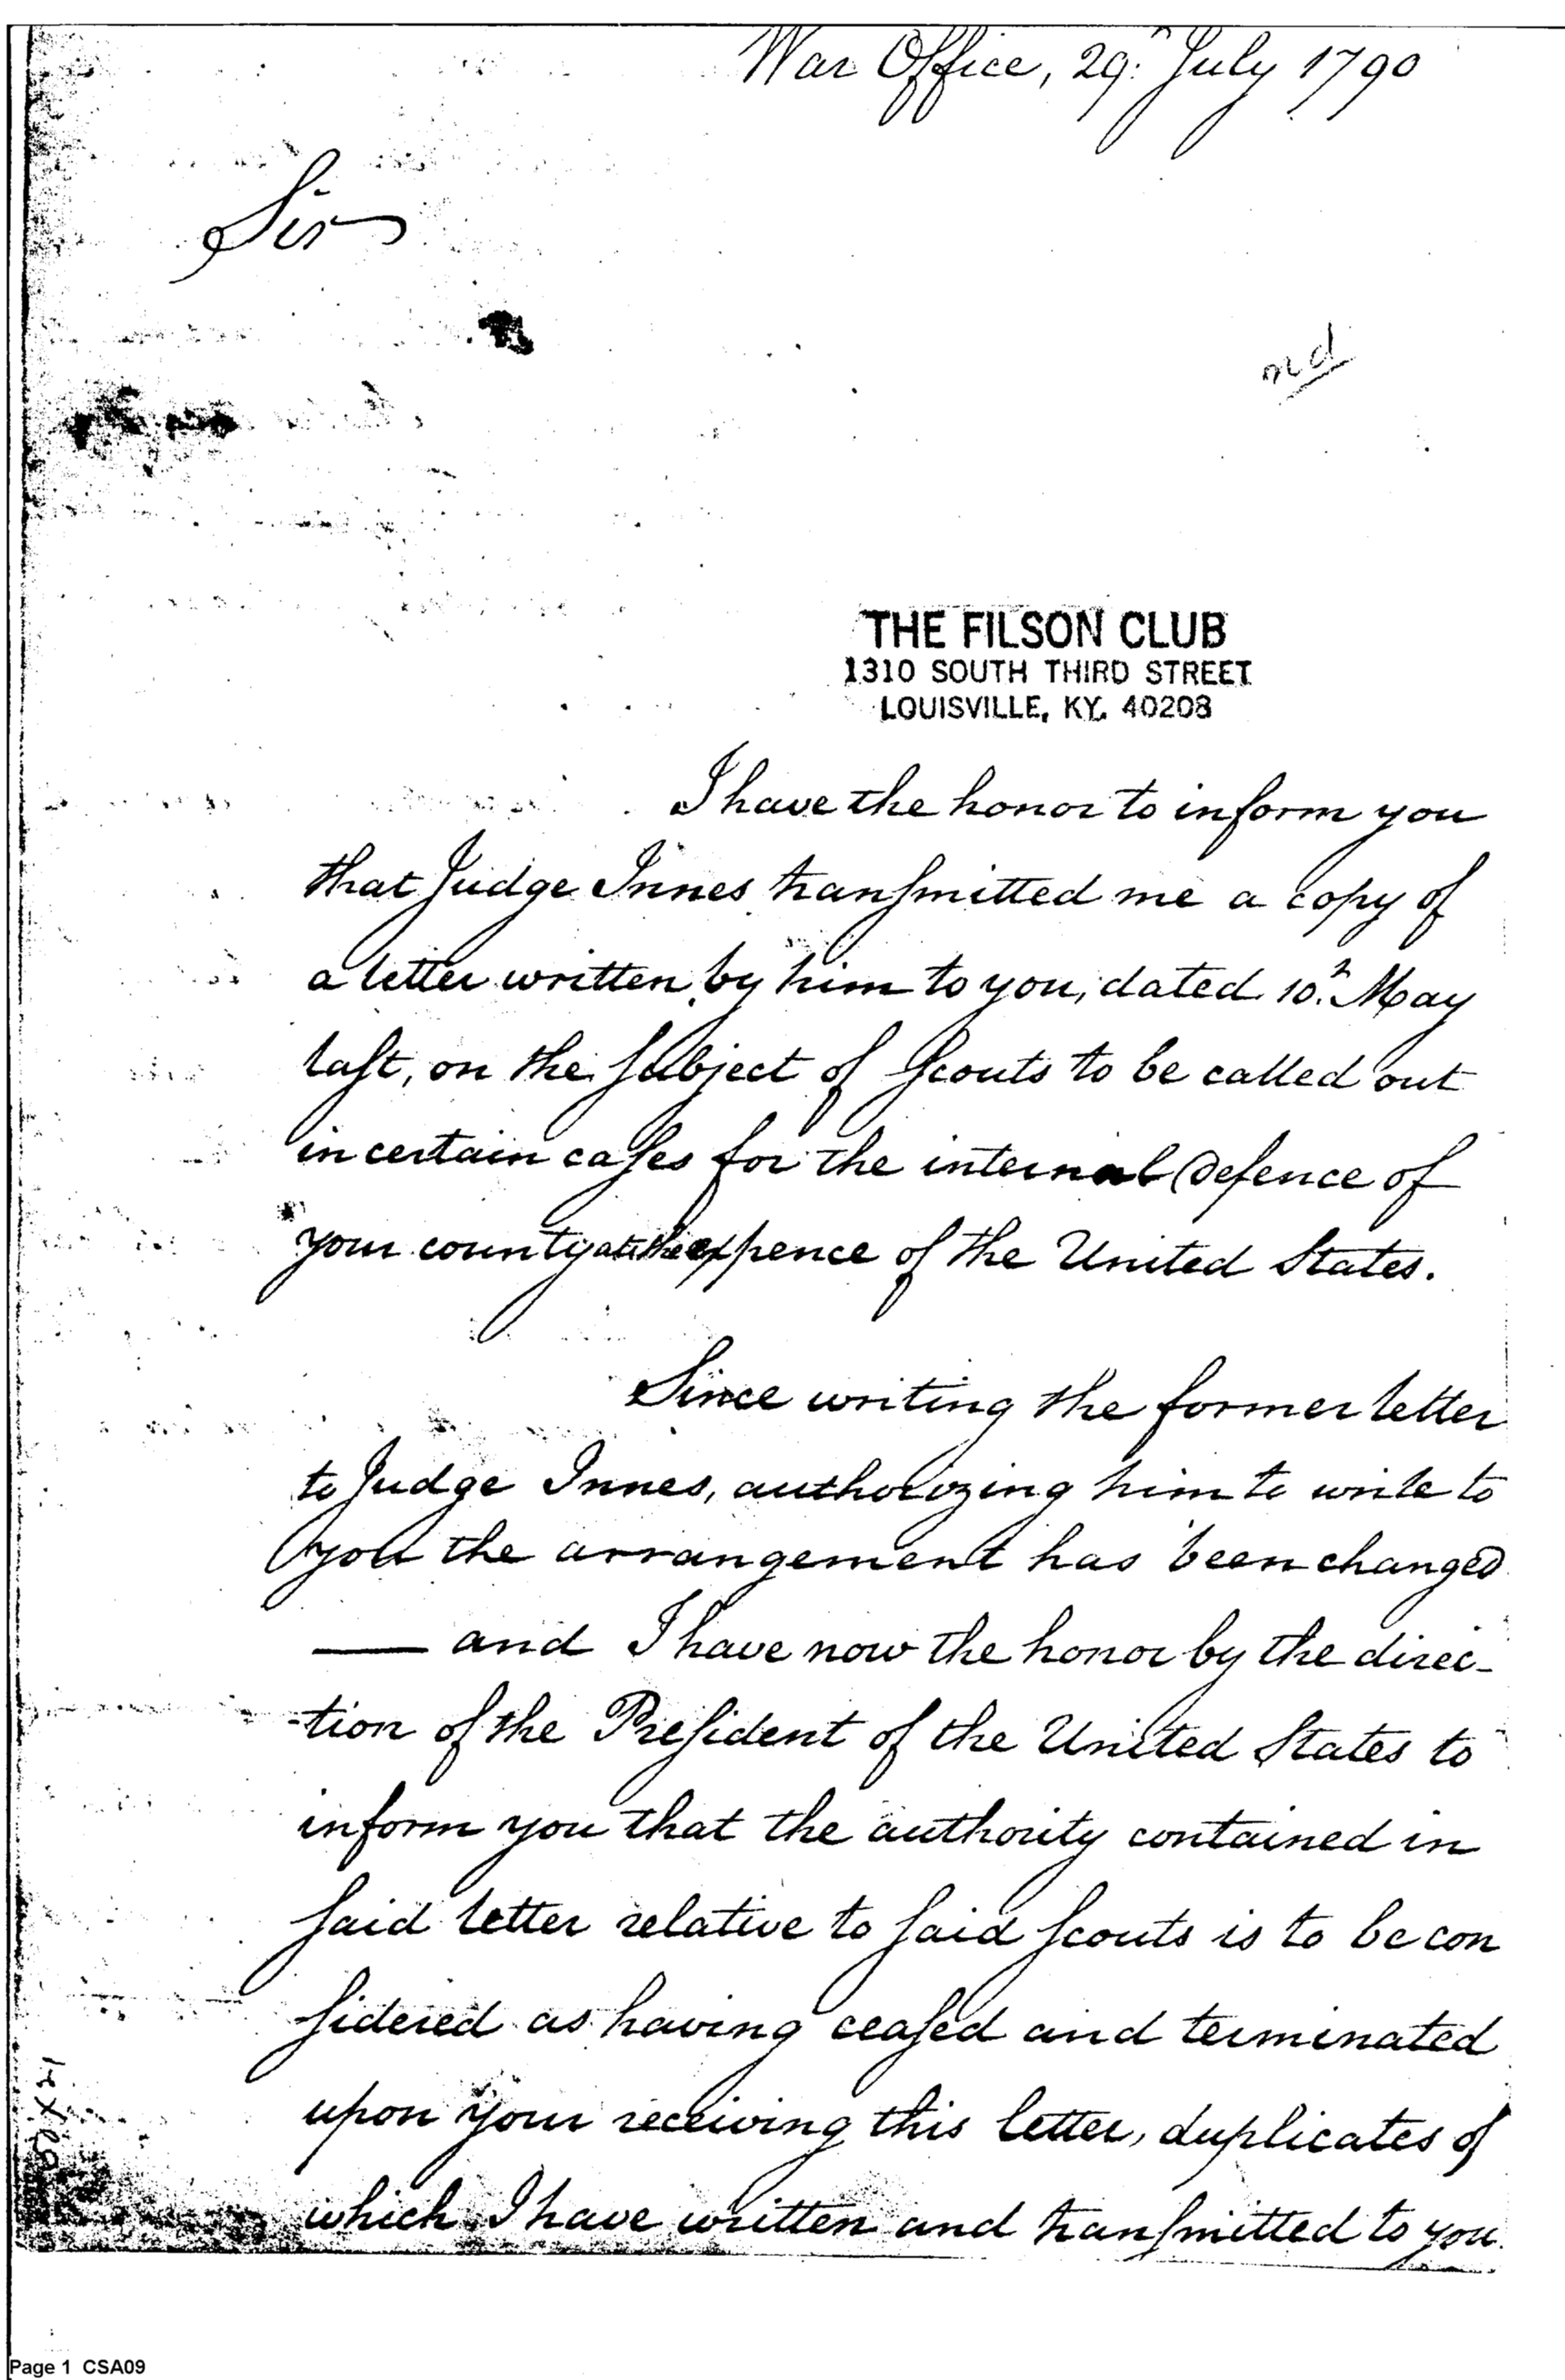 War Office, 29.th July 1790
Sir
nd
THE FILSON CLUB
1310 SOUTH THIRD STREET
LOUISVILLE, KY. 40208
I have the honor to inform you
that Judge Innes tranſmitted me a copy of
a letter written by him to you, dated 10.th May
laſt, on the ſubject of ſcouts to be called out
in certain caſes for the internal Defence of
your county at the expence of the United States.
Since writing the former letter
to Judge Innes, authorizing him to write to
you the arrangement has been changed
— and I have now the honor by the direc-
-tion of the Preſident of the United States to
inform you that the authority contained in
ſaid letter relative to ſaid ſcouts is to be con
ſidered as having ceaſed and terminated
upon your receiving this letter, duplicates of
which I have written and tranſmitted to you.
Page 1 CSA09